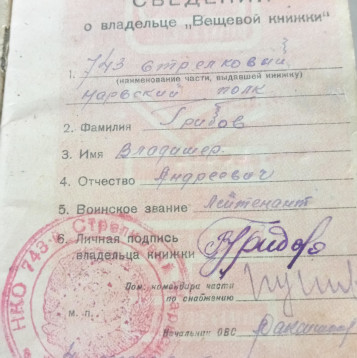 СВЕДЕНИЯ
о владельце „Вещевой книжки"
1. 743 стрелковый
(наименование части, выдавшей книжку)
Нарвский полк
2. Фамилия Грибов
3. Имя Владимер
4. Отчество Андреевич
5. Воинское звание Лейтенант
6. Личная подпись
владельца книжки Грибов
Пом. командира части
по снабжению
М. П.
Начальник ОВС
НКО 743-й Стрелковый Нар